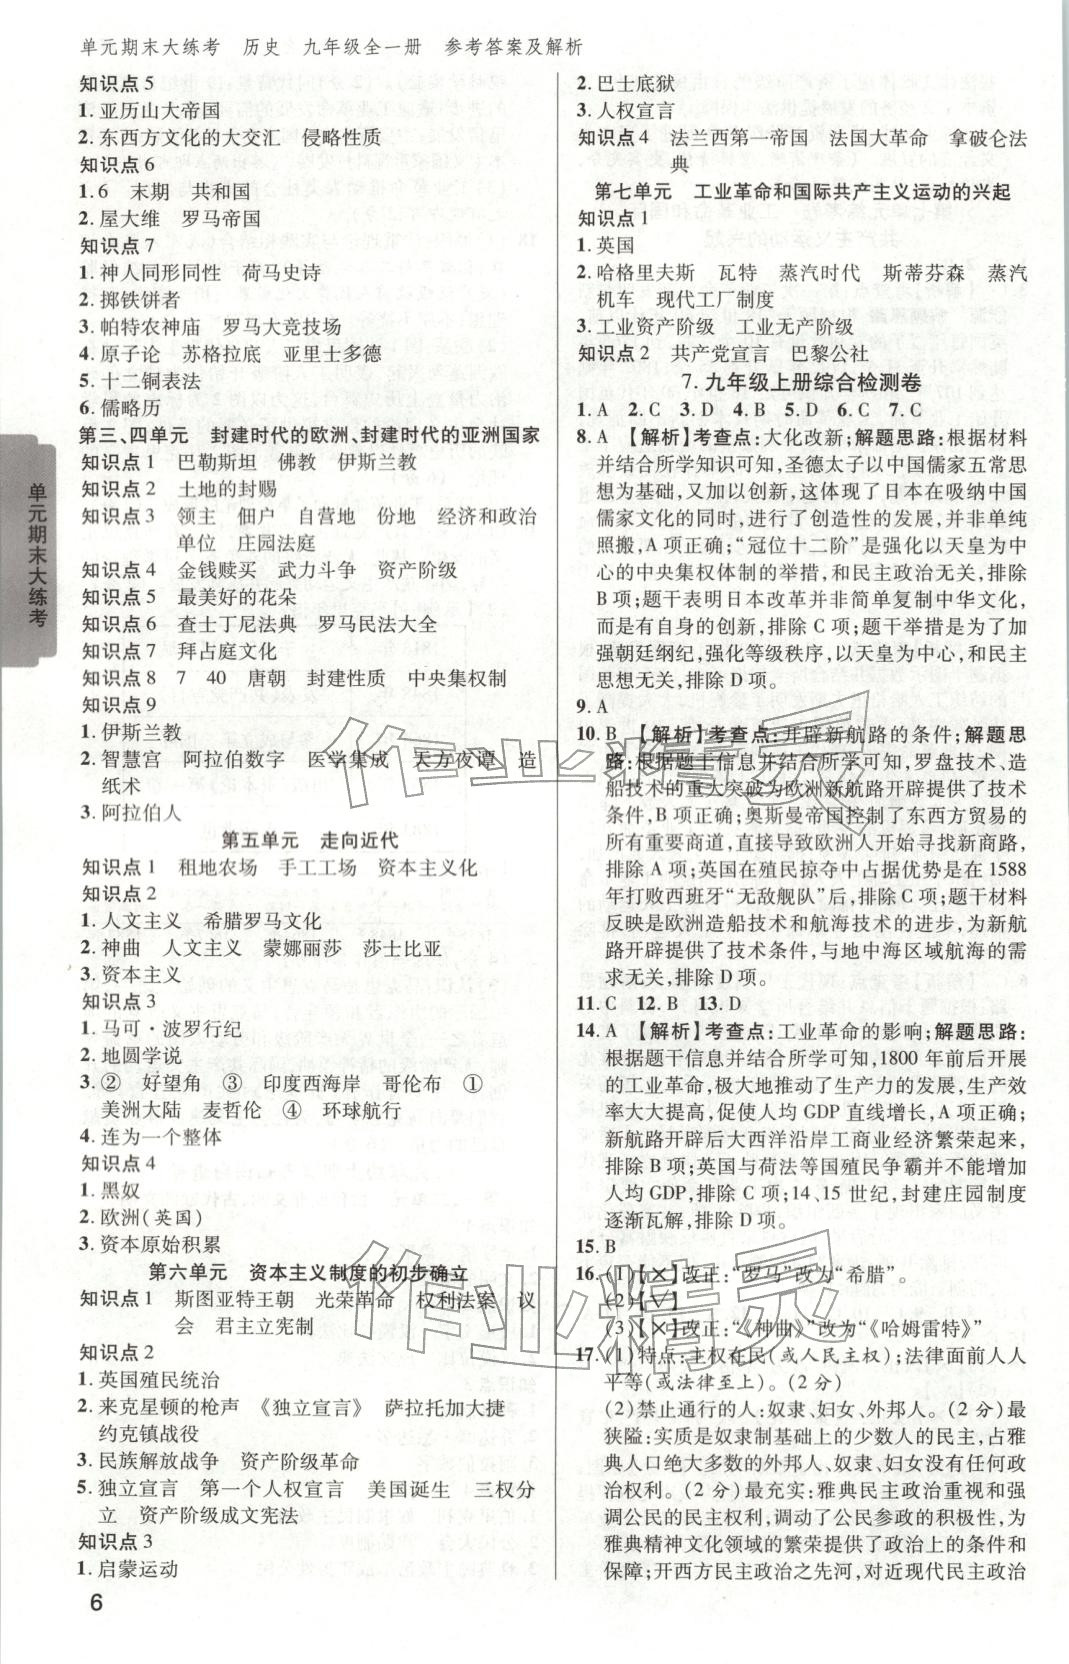 单元期末大练考 历史 九年级全一册 参考答案及解析
知识点5
1.亚历山大帝国
2.东西方文化的大交汇 侵略性质
知识点6
1.6 末期 共和国
2.屋大维 罗马帝国
知识点7
1.神人同形同性 荷马史诗
2.掷铁饼者
3.帕特农神庙 罗马大竞技场
4.原子论 苏格拉底 亚里士多德
5.十二铜表法
6.儒略历
第三、四单元 封建时代的欧洲、封建时代的亚洲国家
知识点1 巴勒斯坦 佛教 伊斯兰教
知识点2 土地的封赐
知识点3 领主 佃户 自营地 份地 经济和政治
单位 庄园法庭
知识点4 金钱赎买 武力斗争 资产阶级
知识点5 最美好的花朵
知识点6 查士丁尼法典 罗马民法大全
知识点7 拜占庭文化
知识点8 7 40 唐朝 封建性质 中央集权制
知识点9
1.伊斯兰教
2.智慧宫 阿拉伯数字 医学集成 天方夜谭 造
纸术
3.阿拉伯人
第五单元 走向近代
知识点1 租地农场 手工工场 资本主义化
知识点2
1.人文主义 希腊罗马文化
2.神曲 人文主义 蒙娜丽莎 莎士比亚
3.资本主义
知识点3
1.马可·波罗行纪
2.地圆学说
3.② 好望角 ③ 印度西海岸 哥伦布 ①
美洲大陆 麦哲伦 ④ 环球航行
4.连为一个整体
知识点4
1.黑奴
2.欧洲(英国)
3.资本原始积累
第六单元 资本主义制度的初步确立
知识点1 斯图亚特王朝 光荣革命 权利法案 议
会 君主立宪制
知识点2
1.英国殖民统治
2.来克星顿的枪声 《独立宣言》 萨拉托加大捷
约克镇战役
3.民族解放战争 资产阶级革命
5.独立宣言 第一个人权宣言 美国诞生 三权分
立 资产阶级成文宪法
知识点3
1.启蒙运动
6
2.巴士底狱
3.人权宣言
知识点4 法兰西第一帝国 法国大革命 拿破仑法
典
第七单元 工业革命和国际共产主义运动的兴起
知识点1
1.英国
2.哈格里夫斯 瓦特 蒸汽时代 斯蒂芬森 蒸汽
机车 现代工厂制度
3.工业资产阶级 工业无产阶级
知识点2 共产党宣言 巴黎公社
7.九年级上册综合检测卷
1.A 2.C 3.D 4.B 5.D 6.C 7.C
8.A 【解析】考查点:大化改新;解题思路:根据材料
并结合所学知识可知,圣德太子以中国儒家五常思
想为基础,又加以创新,这体现了日本在吸纳中国
儒家文化的同时,进行了创造性的发展,并非单纯
照搬,A项正确;“冠位十二阶”是强化以天皇为中
心的中央集权体制的举措,和民主政治无关,排除
B项;题干表明日本改革并非简单复制中华文化,
而是有自身的创新,排除C项;题干举措是为了加
强朝廷纲纪,强化等级秩序,以天皇为中心,和民主
思想无关,排除D项。
9.A
10.B 【解析】考查点:开辟新航路的条件;解题思
路:根据题干信息并结合所学可知,罗盘技术、造
船技术的重大突破为欧洲新航路开辟提供了技术
条件,B项正确;奥斯曼帝国控制了东西方贸易的
所有重要商道,直接导致欧洲人开始寻找新商路,
排除A项;英国在殖民掠夺中占据优势是在1588
年打败西班牙“无敌舰队”后,排除C项;题干材料
反映是欧洲造船技术和航海技术的进步,为新航
路开辟提供了技术条件,与地中海区域航海的需
求无关,排除D项。
11.C 12.B 13.D
14.A 【解析】考查点:工业革命的影响;解题思路:
根据题干信息并结合所学可知,1800年前后开展
的工业革命,极大地推动了生产力的发展,生产效
率大大提高,促使人均GDP直线增长,A项正确;
新航路开辟后大西洋沿岸工商业经济繁荣起来,
排除B项;英国与荷法等国殖民争霸并不能增加
人均GDP,排除C项;14、15世纪,封建庄园制度
逐渐瓦解,排除D项。
15.B
16.(1)【×】改正:“罗马”改为“希腊”。
(2)【√】
(3)【×】改正:“《神曲》”改为“《哈姆雷特》”
17.(1)特点:主权在民(或人民主权);法律面前人人
平等(或法律至上)。(2分)
(2)禁止通行的人:奴隶、妇女、外邦人。(2分)最
狭隘:实质是奴隶制基础上的少数人的民主,占雅
典人口绝大多数的外邦人、奴隶、妇女没有任何政
治权利。(2分)最充实:雅典民主政治重视和强
调公民的民主权利,调动了公民参政的积极性,为
雅典精神文化领域的繁荣提供了政治上的条件和
保障;开西方民主政治之先河,对近现代民主政治
单元期末大练考
作业精灵
作业精灵